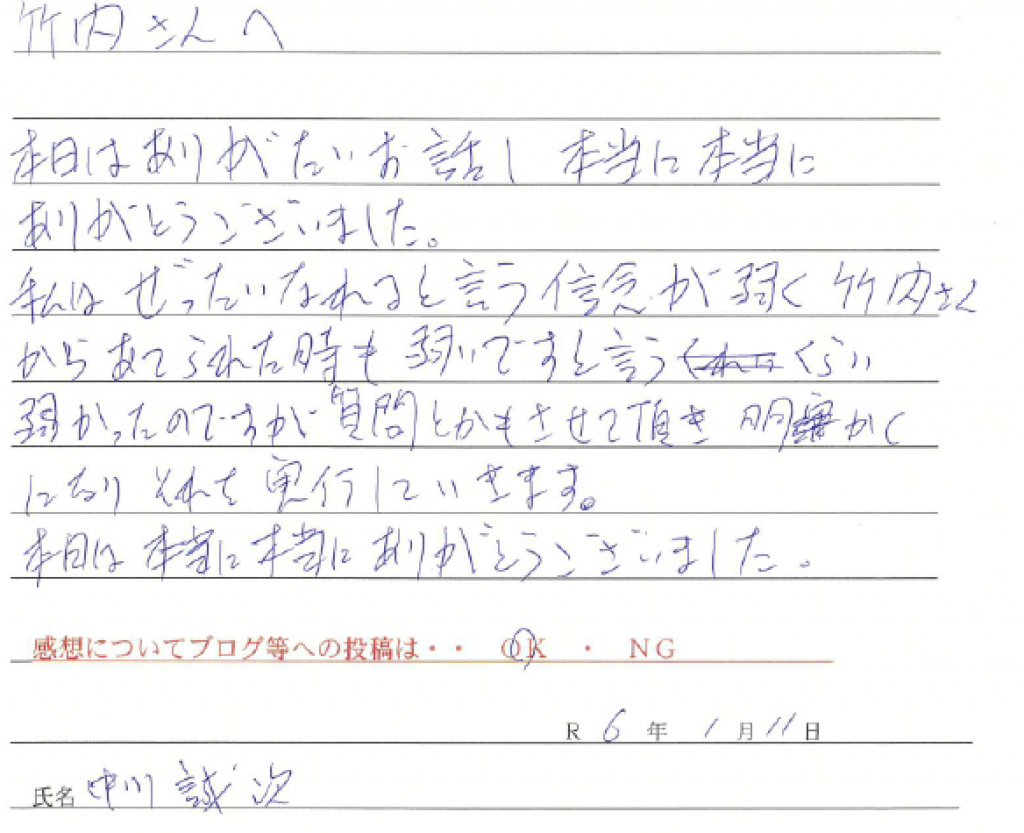 竹内さんへ
本日はありがたいお話し 本当に本当に
ありがとうございました。
私は ぜったいなれると言う信念が弱く 竹内さん
からあてられた時も 弱いですと言う くらい
弱かったのですが 質問とかもさせて頂き 明確かく
になり それを実行していきます。
本日は 本当に本当に ありがとうございました。
感想についてブログ等への投稿は・・ OK ・ NG
R 6 年 1 月 11 日
氏名 中川 誠次